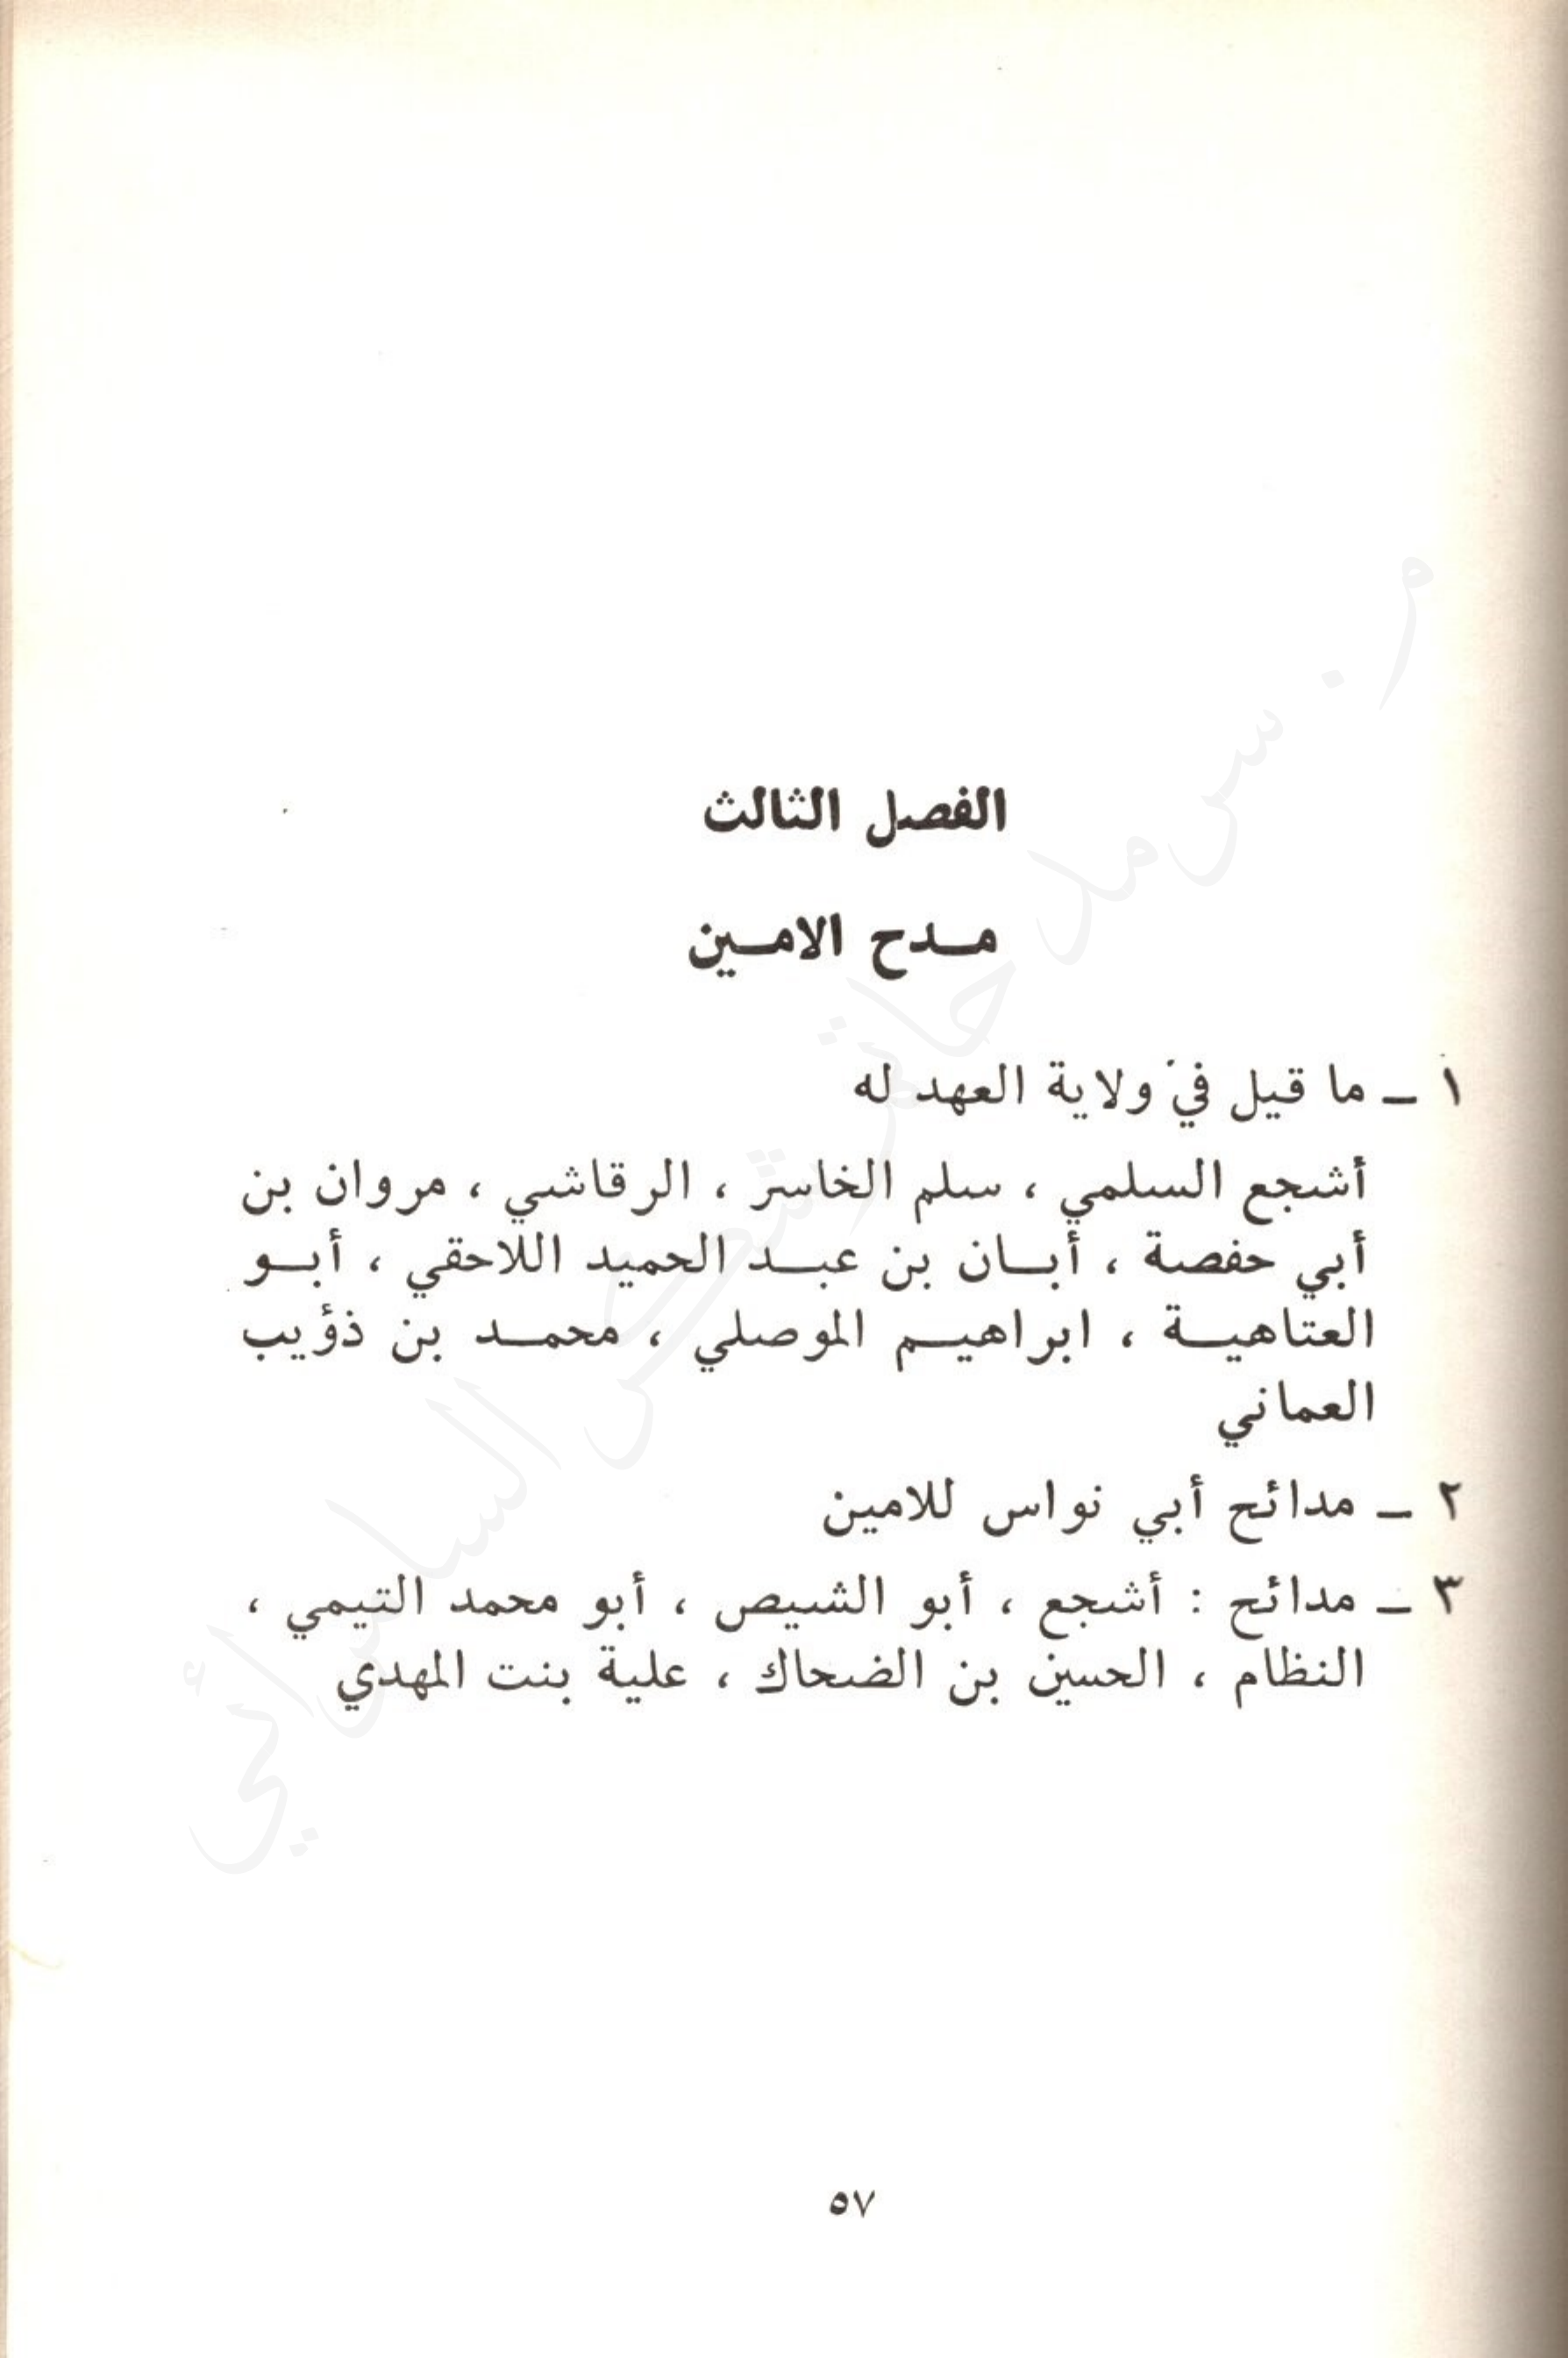 الفصل الثالث
مـدح الامـين
١ ـ ما قيل في ولاية العهد له
أشجع السلمي ، سلم الخاسر ، الرقاشي ، مروان بن
أبي حفصة ، أبـان بن عبـد الحميد اللاحقي ، أبـو
العتاهيـة ، ابراهيـم الموصلي ، محمـد بن ذؤيب
العماني
٢ ـ مدائح أبي نواس للامين
٣ ـ مدائح : أشجع ، أبو الشيص ، أبو محمد التيمي ،
النظام ، الحسين بن الضحاك ، علية بنت المهدي
٥٧